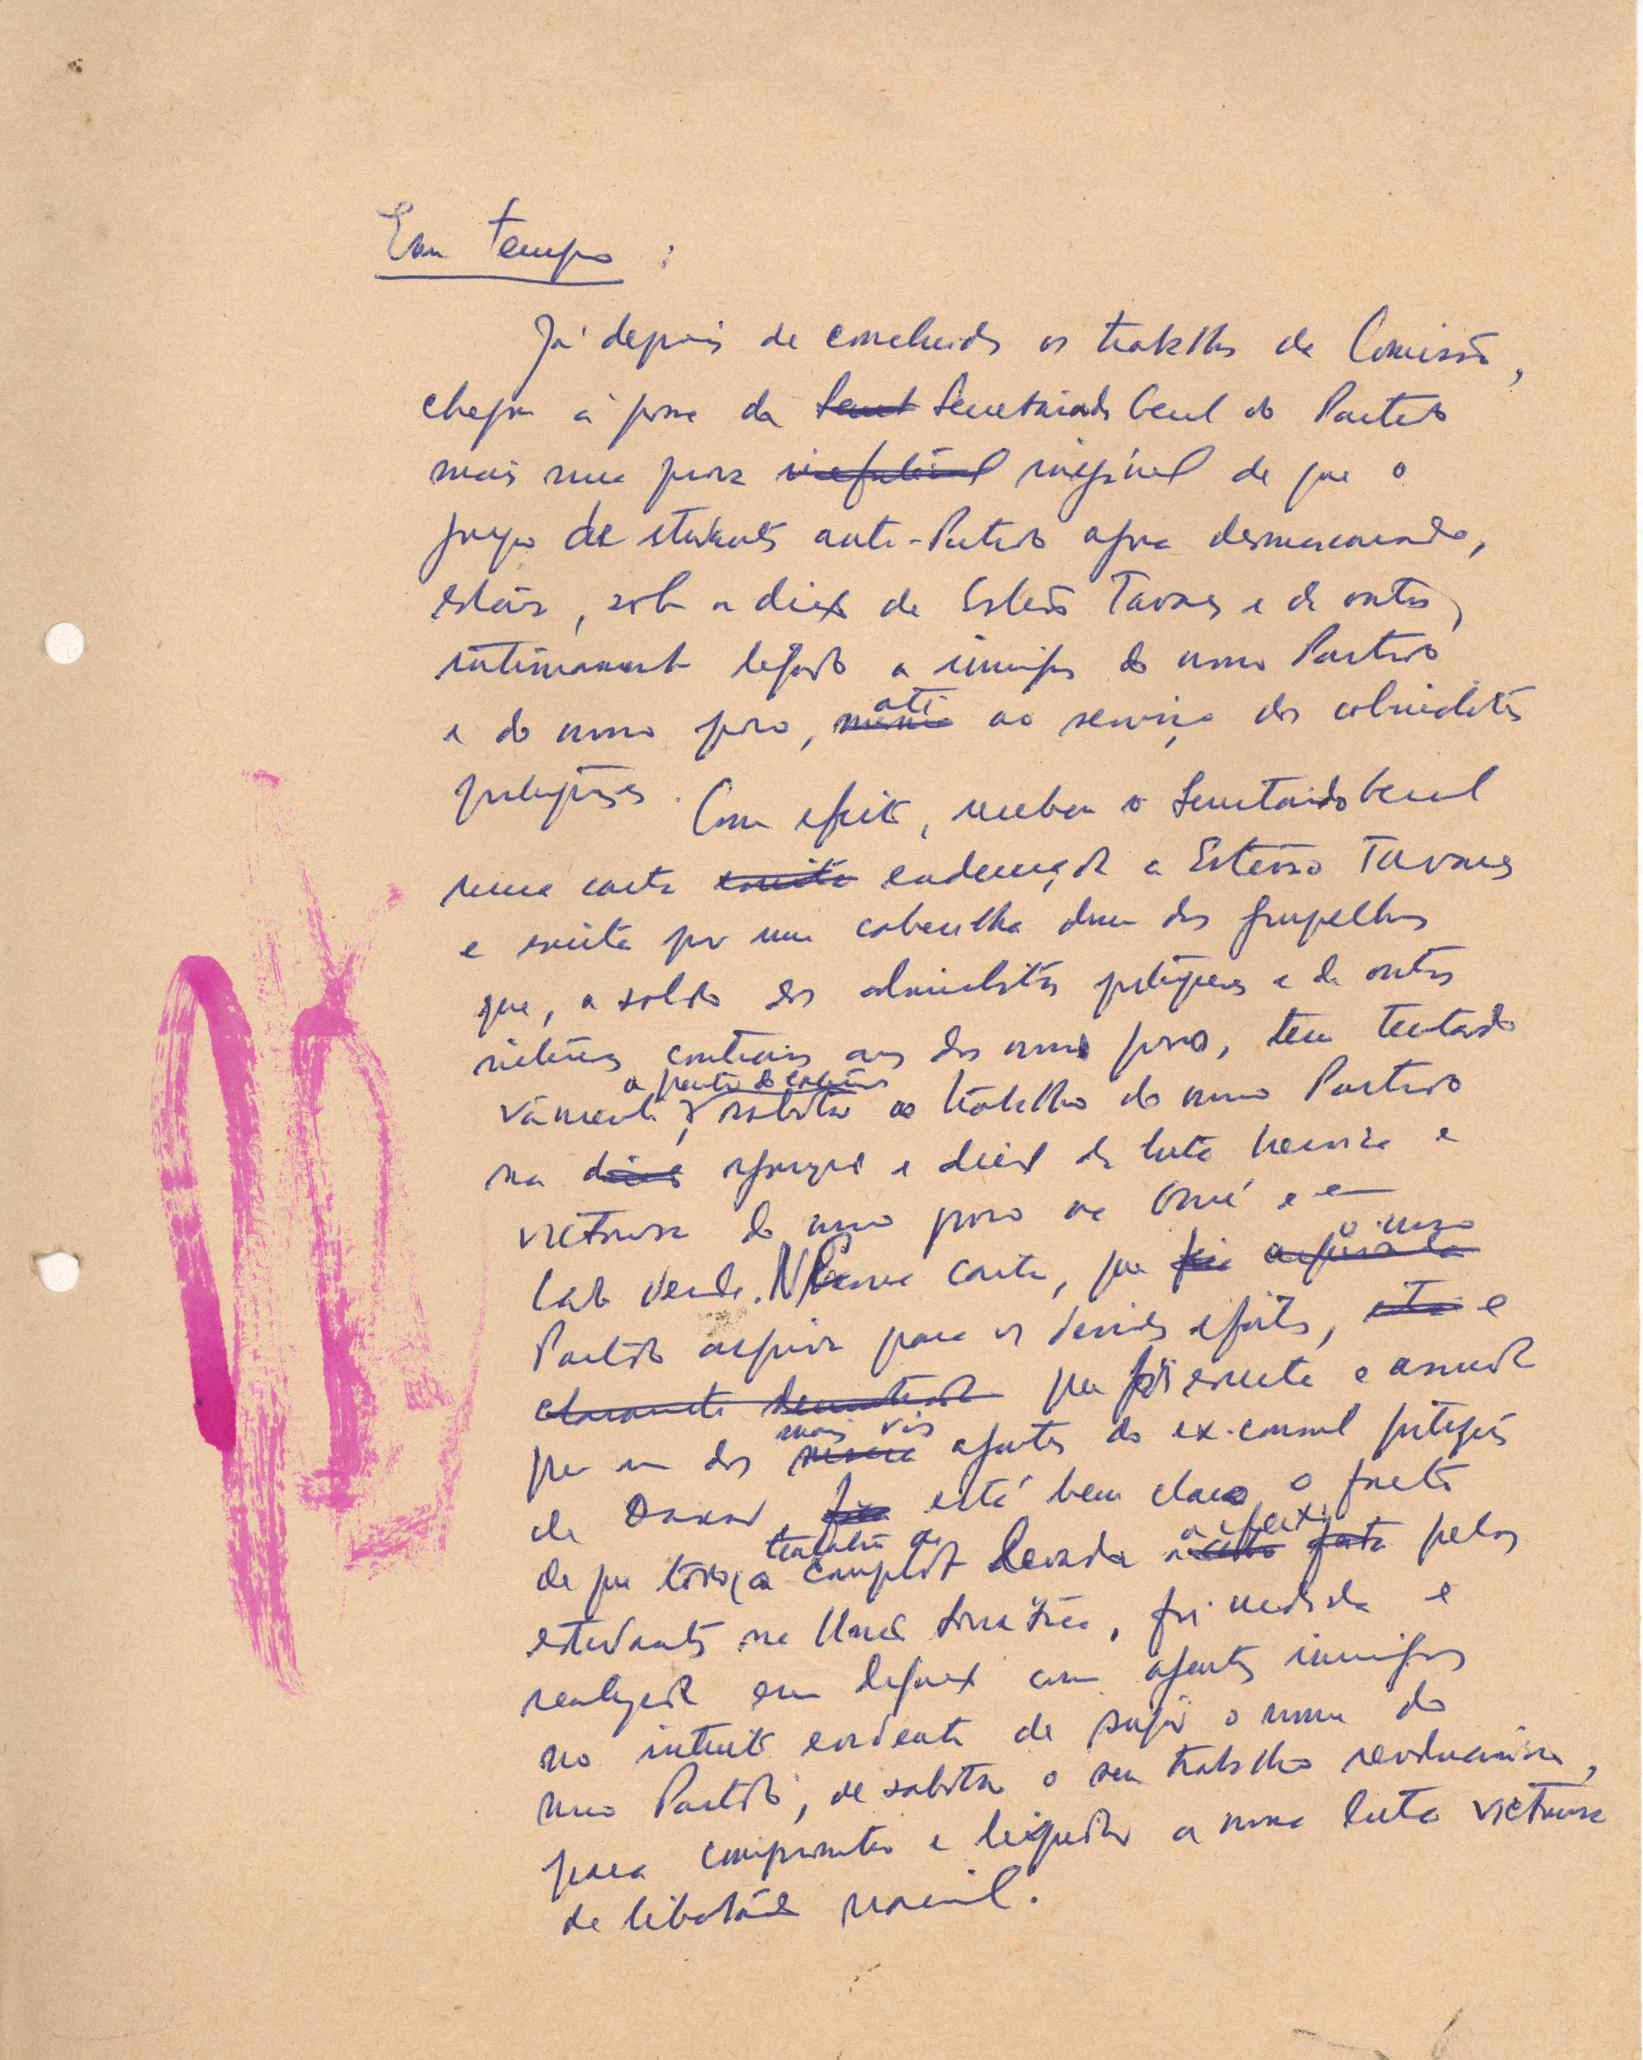 Em tempo :
Já depois de concluidos os trabalhos da Comissão,
chegou à posse do Secretariado Geral do Partido
mais uma prova inegável de que o
grupo de estudantes anti-Partido agora desmascarado,
estava, sob a direcção de Estêvão Tavares e de outros,
intimamente ligado a inimigos do nosso Partido
e do nosso povo, até ao serviço dos colonialistas
portugueses. Com efeito, recebeu o Secretariado Geral
uma carta endereçada a Estêvão Tavares
e escrita por um cabecilha dum dos grupelhos
que, a soldo dos colonialistas portugueses e de outros
interesses contrários aos do nosso povo, tem tentado
vãmente, a partir do exterior sabotar o trabalho do nosso Partido
na organização e direcção da luta heroica e
victoriosa do nosso povo na Guiné e em
Cabo Verde. Nessa carta, que o nosso
Partido arquiva para os devidos efeitos, e
que foi escrita e assinada
por um dos mais vis agentes do ex-consul português
de Dakar, está bem claro o facto
de que toda a tentativa de complot levada a efeito pelos
estudantes na União Soviética, foi urdida e
realizada em ligação com agentes inimigos
no intuito evidente de sujar o nome do
nosso Partido, de sabotar o seu trabalho revolucionário,
para comprometer e liquidar a nossa luta victoriosa
de libertação nacional.